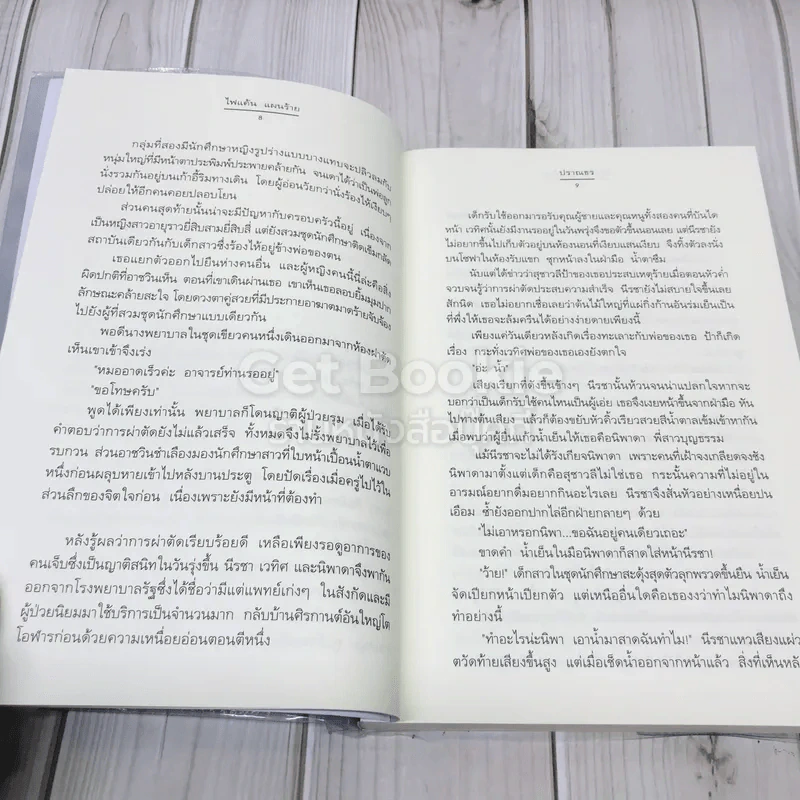 ไฟแค้น แผนร้าย
8
กลุ่มที่สองมีนักศึกษาหญิงรูปร่างแบบบางแทบจะปลิวลมกับ
หนุ่มใหญ่ที่มีหน้าตาประพิมพ์ประพายคล้ายกัน จนเดาได้ว่าเป็นพ่อลูก
นั่งรวมกันอยู่บนเก้าอี้ริมทางเดิน โดยผู้อ่อนวัยกว่านั่งร้องไห้เงียบๆ
ปล่อยให้อีกคนคอยปลอบโยน
ส่วนคนสุดท้ายนั้นน่าจะมีปัญหากับครอบครัวนี้อยู่ เนื่องจาก
เป็นหญิงสาวอายุราวยี่สิบสามยี่สิบสี่ แต่ยังสวมชุดนักศึกษาติดเข็มกลัด
สถาบันเดียวกันกับเด็กสาวซึ่งร้องไห้อยู่ข้างพ่อของตน
เธอแยกออกไปยืนห่างคนอื่น และผู้หญิงคนนี้นี่ล่ะคือสิ่ง
ผิดปกติที่อาชวินเห็น ตอนที่เขาเดินผ่านเธอ เขาเห็นเธอลอบยิ้มมุมปาก
ลักษณะคล้ายสะใจ โดยดวงตาคู่สวยที่มีประกายอาฆาตมาดร้ายจับจ้อง
ไปยังผู้ที่สวมชุดนักศึกษาแบบเดียวกัน
พอดีนางพยาบาลในชุดเขียวคนหนึ่งเดินออกมาจากห้องผ่าตัด
เห็นเขาเข้าจึงเร่ง
"หมออาดเร็วค่ะ อาจารย์ท่านรออยู่"
"ขอโทษครับ"
พูดได้เพียงเท่านั้น พยาบาลก็โดนญาติผู้ป่วยรุม เมื่อได้รับ
คำตอบว่าการผ่าตัดยังไม่แล้วเสร็จ ทั้งหมดจึงไม่รั้งพยาบาลไว้เพื่อ
รบกวน ส่วนอาชวินชำเลืองมองนักศึกษาสาวที่ใบหน้าเปื้อนน้ำตาแวบ
หนึ่งก่อนผลุบหายเข้าไปหลังบานประตู โดยปัดเรื่องเมื่อครู่ไปไว้ใน
ส่วนลึกของจิตใจก่อน เนื่องเพราะยังมีหน้าที่ต้องทำ
หลังรู้ผลว่าการผ่าตัดเรียบร้อยดี เหลือเพียงรอดูอาการของ
คนเจ็บซึ่งเป็นญาติสนิทในวันรุ่งขึ้น นีรชา เวทิศ และนิพาดาจึงพากัน
ออกจากโรงพยาบาลรัฐซึ่งได้ชื่อว่ามีแต่แพทย์เก่งๆ ในสังกัดและมี
ผู้ป่วยนิยมมาใช้บริการเป็นจำนวนมาก กลับบ้านศิรกานต์อันใหญ่โต
โอฬารก่อนด้วยความเหนื่อยอ่อนตอนตีหนึ่ง
ปราณธร
9
เด็กรับใช้ออกมารอรับคุณผู้ชายและคุณหนูทั้งสองคนที่บันได
หน้า เวทิศนั้นยังมีงานรออยู่ในวันพรุ่งจึงขอตัวขึ้นนอนเลย แต่นีรชายัง
ไม่อยากขึ้นไปเก็บตัวอยู่บนห้องนอนที่เงียบแสนเงียบ จึงทิ้งตัวลงนั่ง
บนโซฟาในห้องรับแขก ซุกหน้าลงในฝ่ามือ น้ำตาซึม
นับแต่ได้ข่าวว่าสุชาวลีป้าของเธอประสบเหตุร้ายเมื่อตอนหัวค่ำ
จวบจนรู้ว่าการผ่าตัดประสบความสำเร็จ นีรชายังไม่สบายใจขึ้นเลย
สักนิด เธอไม่อยากเชื่อเลยว่าต้นไม้ใหญ่ที่แผ่กิ่งก้านอันร่มเย็นเป็น
ที่พึ่งให้เธอจะล้มครืนได้อย่างง่ายดายเพียงนี้
เพียงแค่วันเดียวหลังเกิดเรื่องทะเลาะกับพ่อของเธอ ป้าก็เกิด
เรื่อง กระทั่งเวทิศพ่อของเธอเองยังตกใจ
"อ่ะ น้ำ"
เสียงเรียกที่ดังขึ้นข้างๆ นีรชานั้นห้วนจนน่าแปลกใจหากจะ
บอกว่าเป็นเด็กรับใช้คนไหนเป็นผู้เอ่ย เธอจึงเงยหน้าขึ้นจากฝ่ามือ หัน
ไปทางต้นเสียง แล้วก็ต้องขยับหัวคิ้วเรียวสวยสีน้ำตาลเข้มเข้าหากัน
เมื่อพบว่าผู้ยื่นแก้วน้ำเย็นให้เธอคือนิพาดา พี่สาวบุญธรรม
แม้นีรชาจะไม่ได้รังเกียจนิพาดา เพราะคนที่เฝ้าจงเกลียดจงชัง
นิพาดามาตั้งแต่เด็กคือสุชาวลีไม่ใช่เธอ กระนั้นความที่ไม่อยู่ใน
อารมณ์อยากดื่มอยากกินอะไรเลย นีรชาจึงสั่นหัวอย่างเหนื่อยปน
เอือม ซ้ำยังออกปากไล่อีกฝ่ายกลายๆ ด้วย
"ไม่เอาหรอกนิพา...ขอฉันอยู่คนเดียวเถอะ"
ขาดคำ น้ำเย็นในมือนิพาดาก็สาดใส่หน้านีรชา!
"ว้าย!" เด็กสาวในชุดนักศึกษาสะดุ้งสุดตัวลุกพรวดขึ้นยืน น้ำเย็น
จัดเปียกหน้าเปียกตัว แต่เหนืออื่นใดคือเธองงว่าทำไมนิพาดาถึง
ทำอย่างนี้
"ทำอะไรน่ะนิพา เอาน้ำมาสาดฉันทำไม!" นีรชาแหวเสียงแผ่ว
ตวัดท้ายเสียงขึ้นสูง แต่เมื่อเช็ดน้ำออกจากหน้าแล้ว สิ่งที่เห็นหลัง
Get Bookie